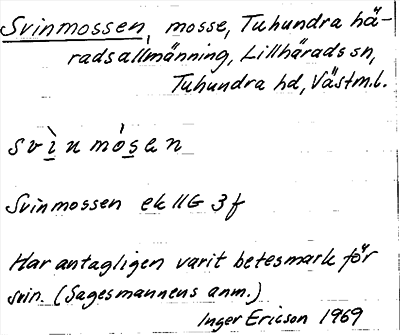 Svinmossen, mosse, Tuhundra hä-
radsallmänning, Lillhärads sn,
Tuhundra hd, Västml.
svìnmósen
Svinmossen ek 11G 3f
Har antagligen varit betesmark för
svin. (Sagesmannens anm.)
Inger Ericson 1969